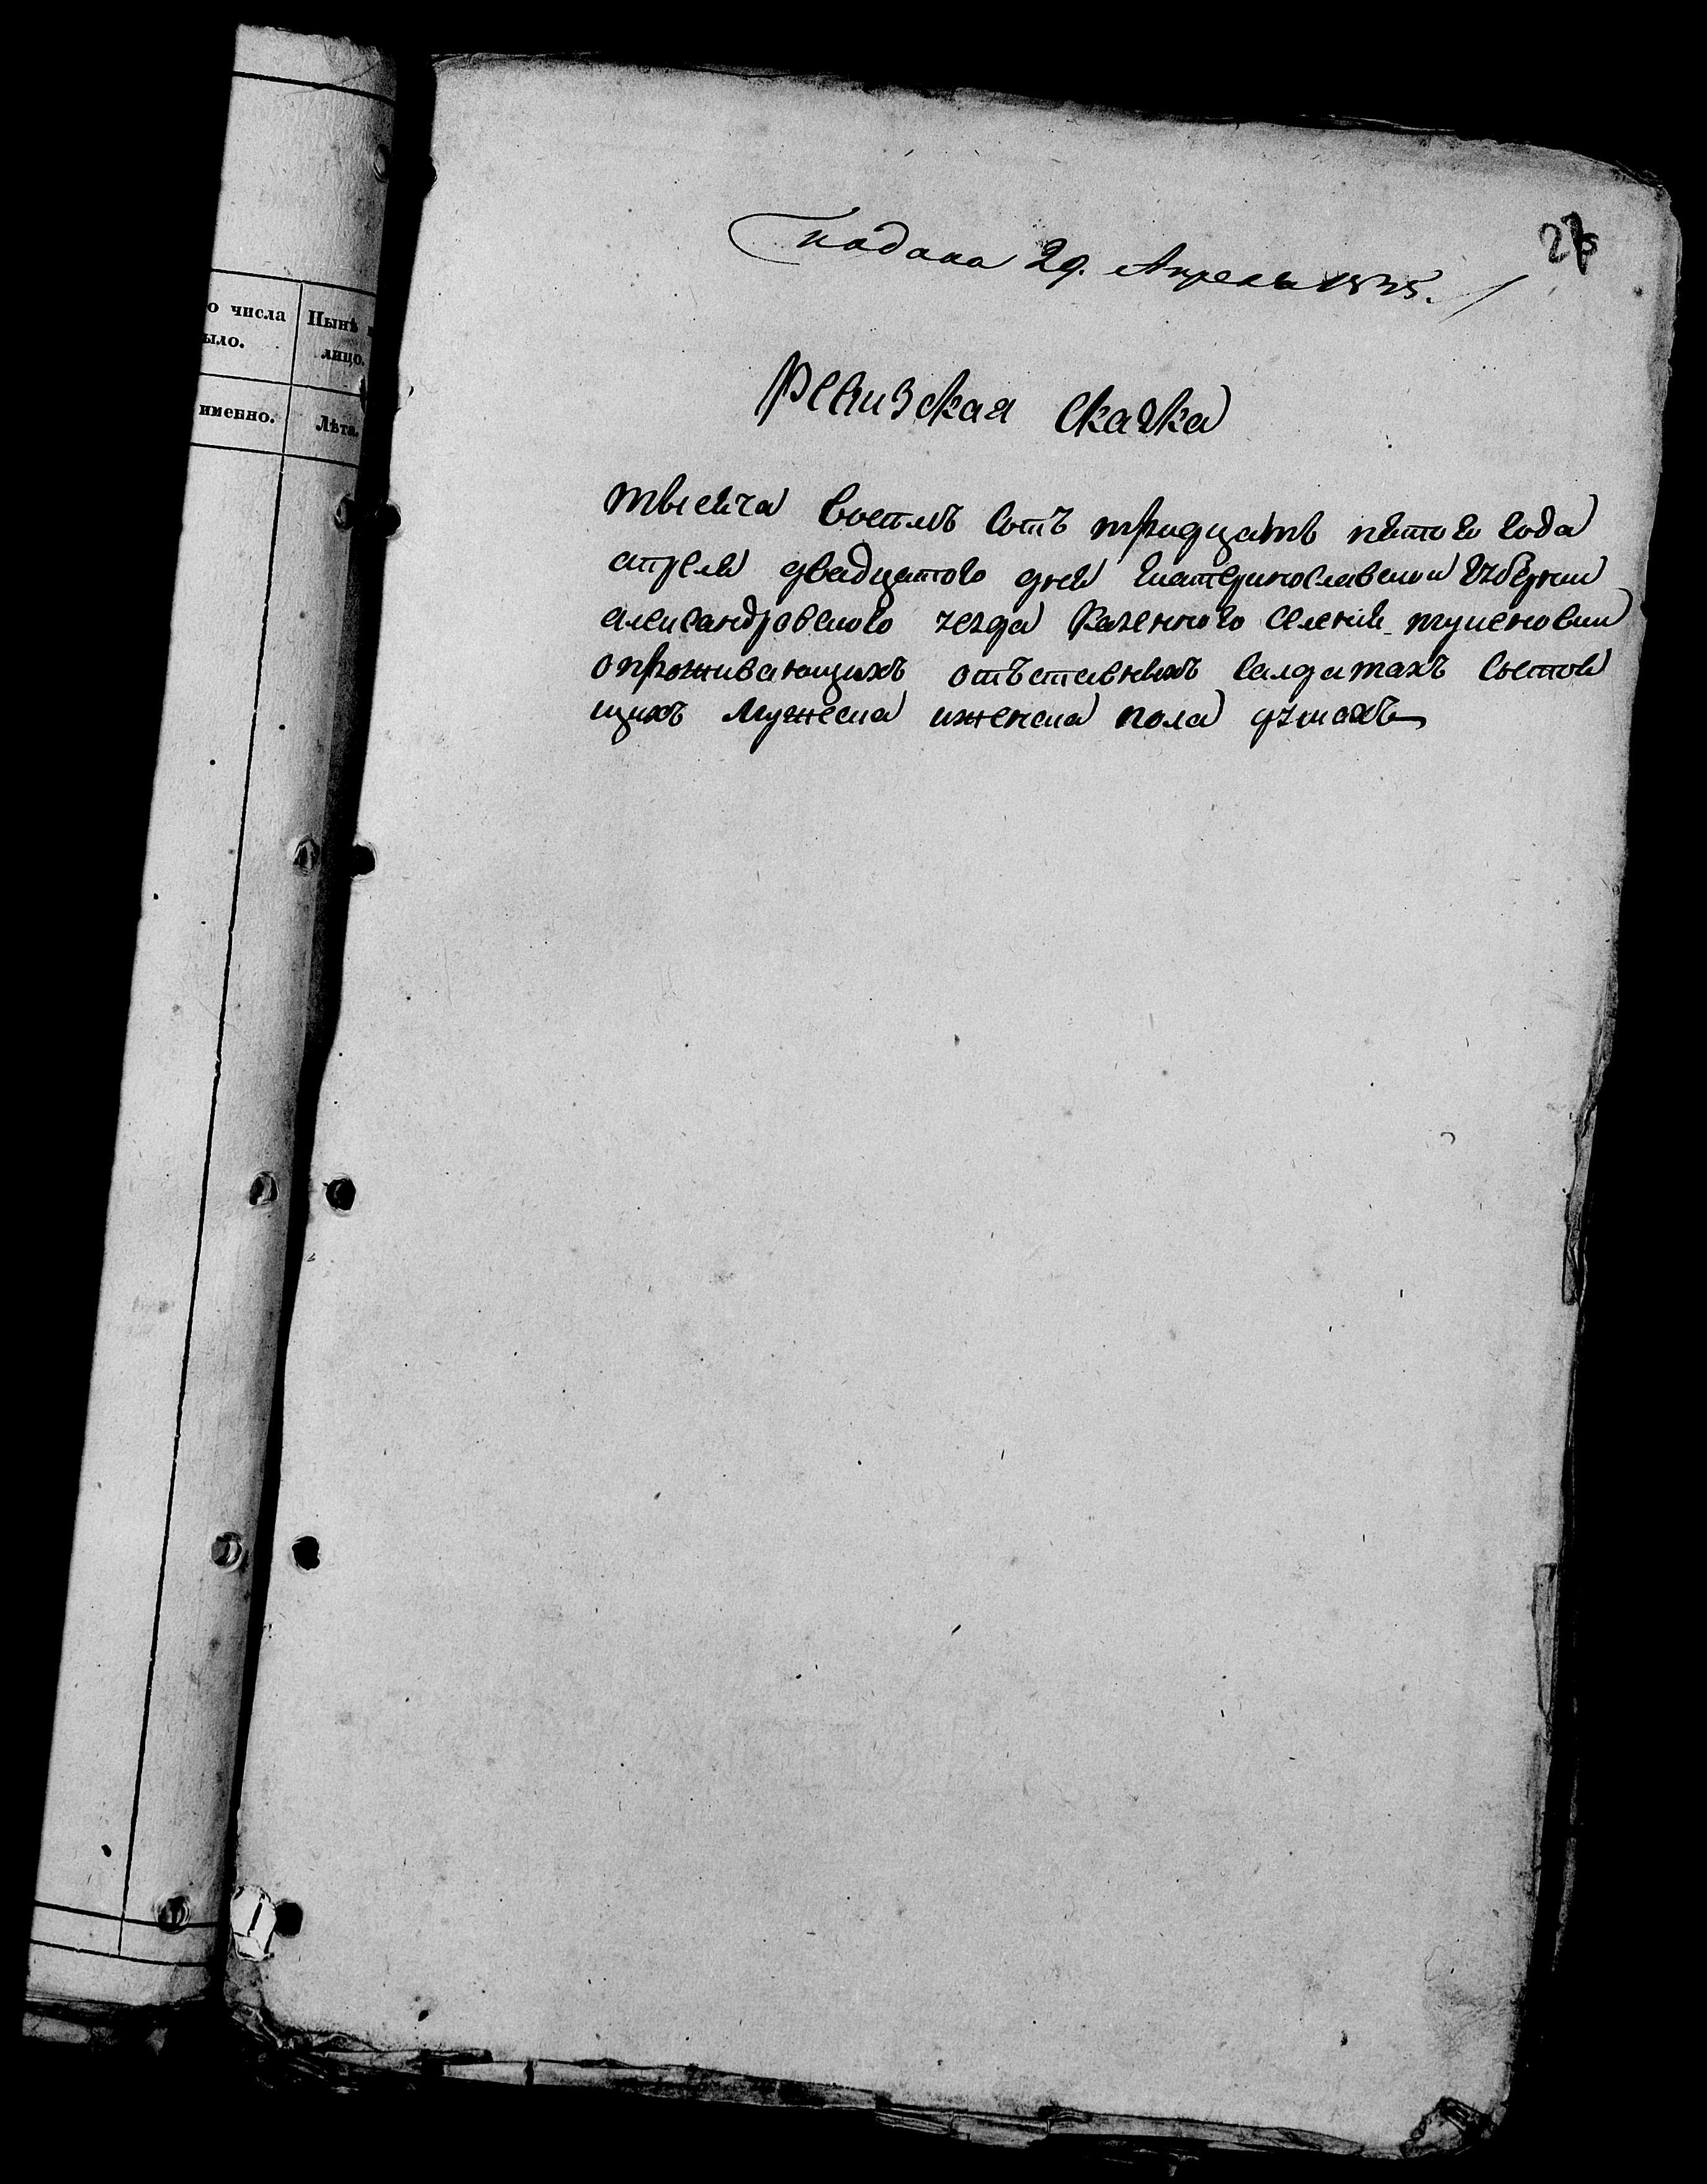 подана 29. Апреля 1835.
27
Ревизская сказка
тысяча восемь сотъ тридцать пятого года
апреля двадцатого дня Екатеринославской губернии
александровского уезда Казенного селения
о проживающихъ отъставныхъ салдатахъ состои
щихъ мужеска иженска пола душахъ
о числа
ыло.
Нынѣ
лицо.
именно.
Лѣта.